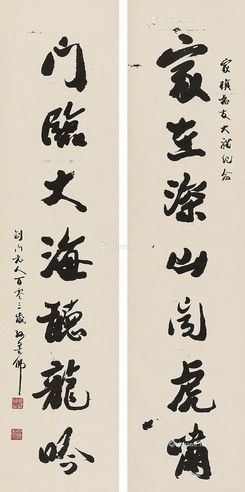 家禎老友大雅紀念
家在深山聞虎嘯
門臨大海聽龍吟
劍門老人百零三歲孫墨佛